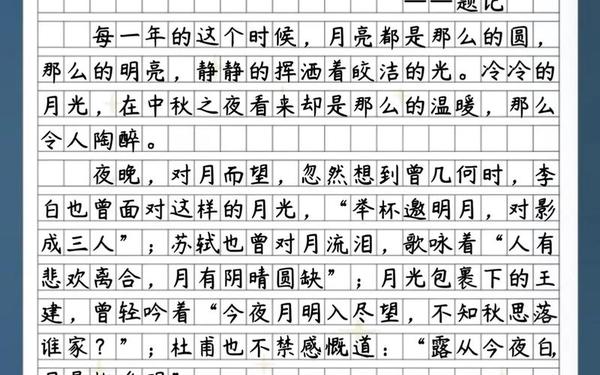 ——题记
每一年的这个时候，月亮都是那么的圆，
那么的明亮，静静的挥洒着皎洁的光。冷冷的
月光，在中秋之夜看来却是那么的温暖，那么
令人陶醉。
夜晚，对月而望，忽然想到曾几何时，李
白也曾面对这样的月光，“举杯邀明月，对影
成三人”；苏轼也曾对月流泪，歌咏着“人有
悲欢离合，月有阴晴圆缺”；月光包裹下的王
建，曾轻吟着“今夜月明入尽望，不知秋思落
谁家？”；杜甫也不禁感慨道：“露从今夜白，